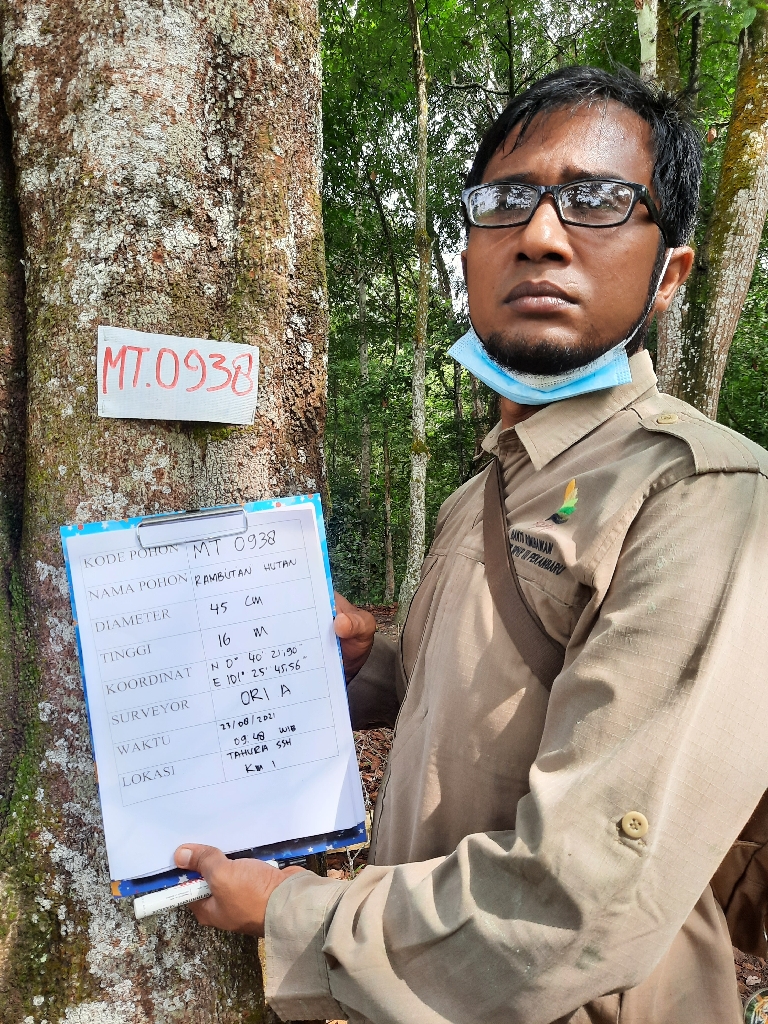 MT.0938
KODE POHON MT 0938
NAMA POHON RAMBUTAN HUTAN
DIAMETER 45 CM
TINGGI 16 M
KOORDINAT N 0° 40' 21,90"
E 101° 25' 45,56"
SURVEYOR ORI A
WAKTU 27/08/2021
09.48 WIB
LOKASI TAHURA SSH
KM 1
BAKTI RIMBAWAN
PEKANBARU